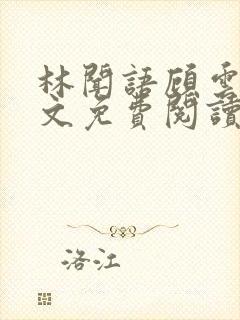 林聞語顧雲
文免費閱讀
洛江